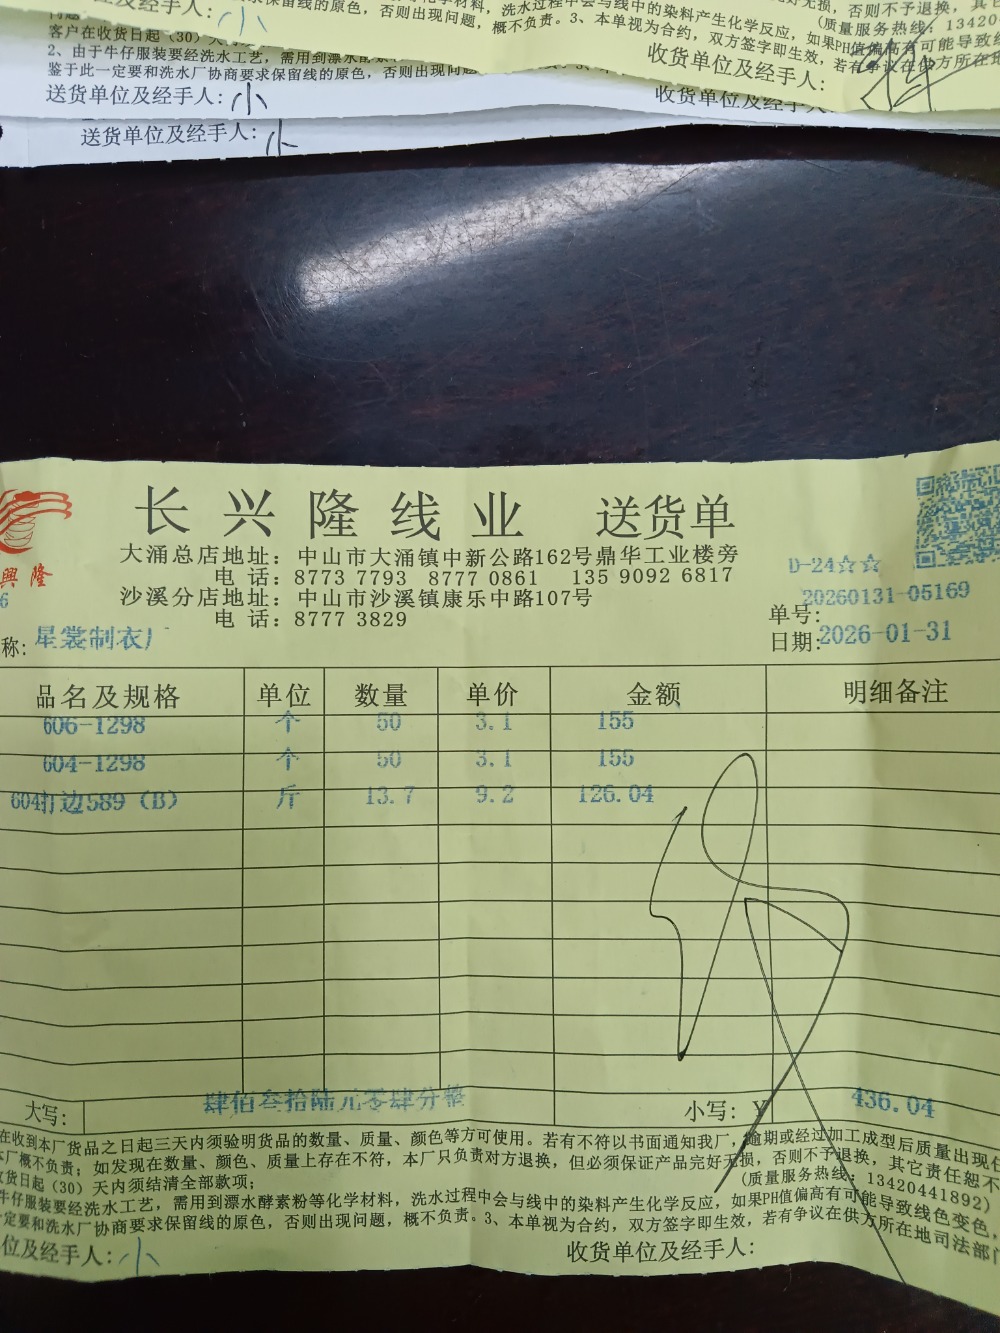 送货单位及经手人: 小
客户在收货日起(30)天
2、由于牛仔服装要经洗水工艺,需用到漂水酵素
鉴于此一定要和洗水厂协商要求保留线的原色,否则出现问题
收货单位及经手人:
送货单位及经手人: 小
收货单位及经手人:
送货单位及经手人: 小
长兴隆线业 送货单
興隆
大涌总店地址: 中山市大涌镇中新公路162号鼎华工业楼旁
电 话: 8773 7793 8777 0861 135 9092 6817
沙溪分店地址: 中山市沙溪镇康乐中路107号
电 话: 8777 3829
D-24☆☆
单号: 20260131-05169
称: 星裳制衣厂
日期: 2026-01-31
品名及规格 单位 数量 单价 金额 明细备注
606-1298 个 50 3.1 155
604-1298 个 50 3.1 155
604打边589 (B) 斤 13.7 9.2 126.04
大写: 肆佰叁拾陆元零肆分整 小写: ¥ 436.04
在收到本厂货品之日起三天内须验明货品的数量、质量、颜色等方可使用。若有不符以书面通知我厂,逾期或经过加工成型后质量出现任
本厂概不负责;如发现在数量、颜色、质量上存在不符,本厂只负责对方退换,但必须保证产品完好无损,否则不予退换,其它责任恕不
收货日起(30)天内须结清全部款项; (质量服务热线: 13420441892)
牛仔服装要经洗水工艺,需用到漂水酵素粉等化学材料,洗水过程中会与线中的染料产生化学反应,如果PH值偏高有可能导致线色变色,
一定要和洗水厂协商要求保留线的原色,否则出现问题,概不负责。3、本单视为合约,双方签字即生效,若有争议在供方所在地司法部门
位及经手人: 小 收货单位及经手人: